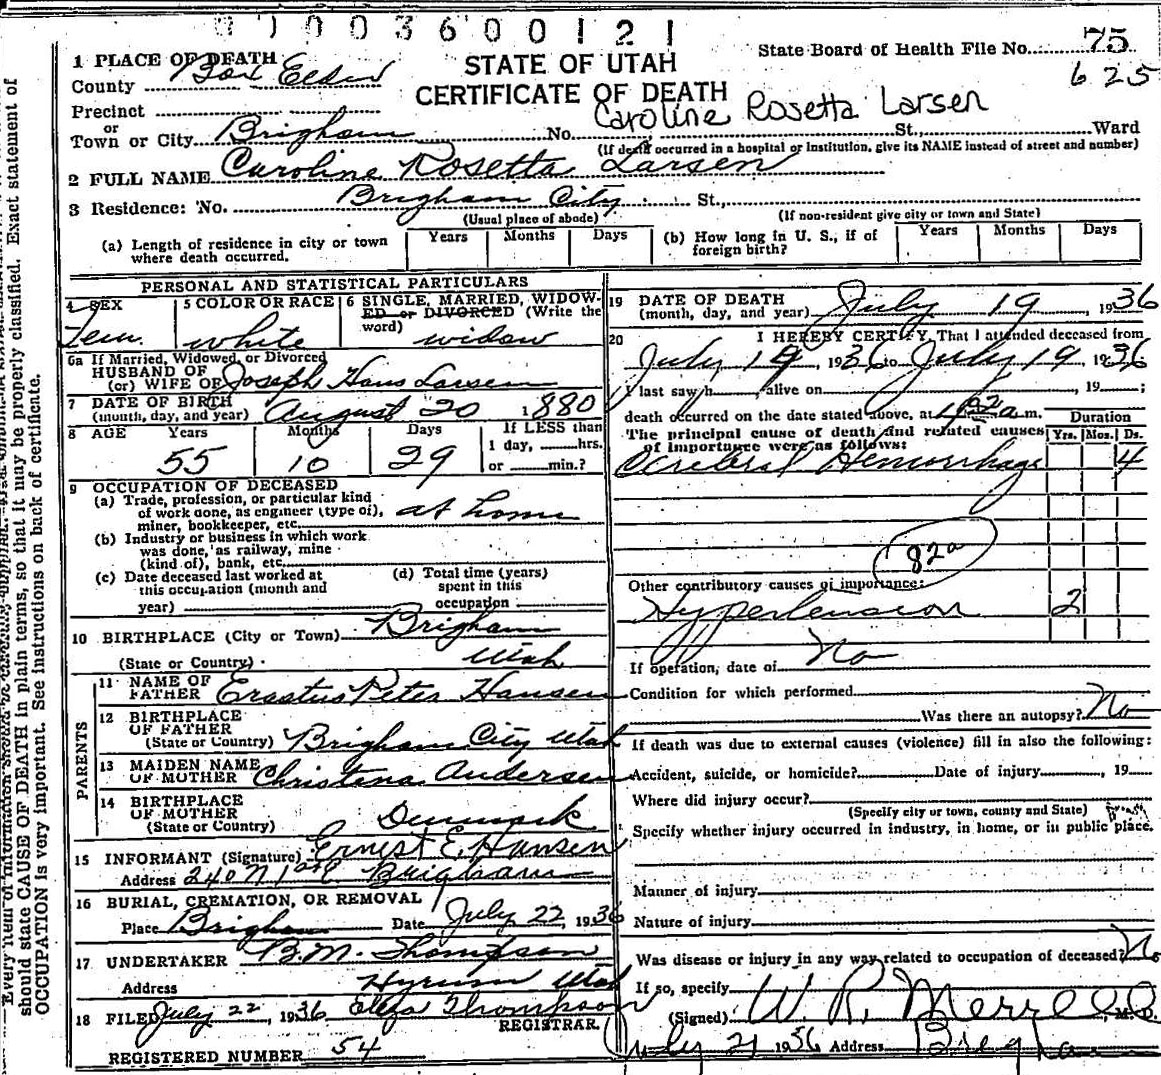 0 1 0 0 3 6 0 0 1 2 1
State Board of Health File No. 75
625
STATE OF UTAH
CERTIFICATE OF DEATH
1 PLACE OF DEATH
County Box Elder
Precinct
or
Town or City Brigham No. Caroline Rosetta Larsen St., Ward
(If death occurred in a hospital or institution, give its NAME instead of street and number)
2 FULL NAME Caroline Rosetta Larsen
3 Residence: No. Brigham City St.,
(Usual place of abode) (If non-resident give city or town and State)
(a) Length of residence in city or town where death occurred. Years Months Days
(b) How long in U. S., if of foreign birth? Years Months Days
PERSONAL AND STATISTICAL PARTICULARS
4 SEX Fem.
5 COLOR OR RACE white
6 SINGLE, MARRIED, WIDOWED or DIVORCED (Write the word) widow
6a If Married, Widowed, or Divorced
HUSBAND OF
(or) WIFE OF Joseph Hans Larsen
7 DATE OF BIRTH
(month, day, and year) August 20 1880
8 AGE Years Months Days If LESS than
55 10 29 1 day, hrs.
or min.?
9 OCCUPATION OF DECEASED
(a) Trade, profession, or particular kind
of work done, as engineer (type of),
miner, bookkeeper, etc. at home
(b) Industry or business in which work
was done, as railway, mine
(kind of), bank, etc.
(c) Date deceased last worked at
this occupation (month and
year)
(d) Total time (years)
spent in this
occupation
10 BIRTHPLACE (City or Town) Brigham
(State or Country) Utah
PARENTS
11 NAME OF
FATHER Erastus Peter Hansen
12 BIRTHPLACE
OF FATHER
(State or Country) Brigham City Utah
13 MAIDEN NAME
OF MOTHER Christena Andersen
14 BIRTHPLACE
OF MOTHER
(State or Country) Denmark
15 INFORMANT (Signature) Ernest E. Hansen
Address 240 N 1st E. Brigham
16 BURIAL, CREMATION, OR REMOVAL
Place Brigham Date July 22, 1936
17 UNDERTAKER B.M. Thompson
Address Hyrum Utah
18 FILED July 22, 1936 Thompson
REGISTRAR.
REGISTERED NUMBER 54
19 DATE OF DEATH
(month, day, and year) July 19 1936
20 I HEREBY CERTIFY, That I attended deceased from
July 19, 1936 to July 19, 1936
I last saw h alive on , 19 ;
death occurred on the date stated above, at a m.
The principal cause of death and related causes
of importance were as follows:
Duration
Yrs. Mos. Ds.
Cerebral Hemorrhage 4
82a
Other contributory causes of importance:
Hypertension 2
If operation, date of No
Condition for which performed
Was there an autopsy? No
If death was due to external causes (violence) fill in also the following:
Accident, suicide, or homicide? Date of injury , 19
Where did injury occur?
(Specify city or town, county and State)
Specify whether injury occurred in industry, in home, or in public place.
Manner of injury
Nature of injury
Was disease or injury in any way related to occupation of deceased? No
If so, specify
(Signed) W. R. Merrell, M. D.
July 21 1936 Address Brigham
should state CAUSE OF DEATH in plain terms, so that it may be properly classified. Exact statement of
OCCUPATION is very important. See instructions on back of certificate.